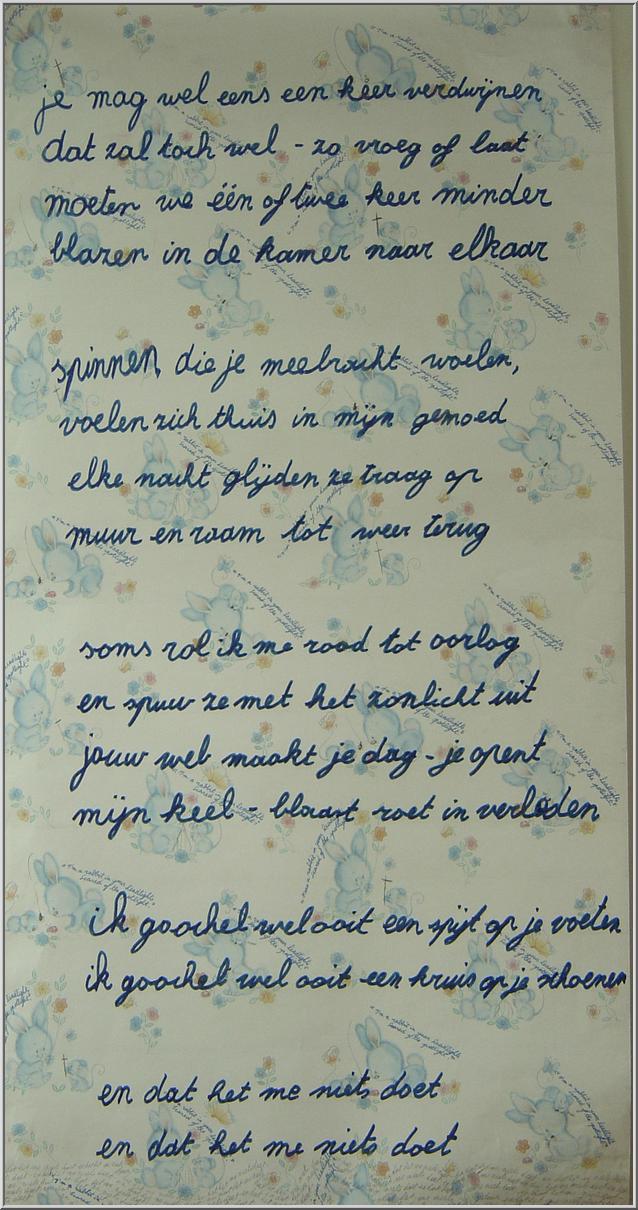 je mag wel eens een keer verdwijnen
dat zal toch wel - zo vroeg of laat
moeten we één of twee keer minder
blazen in de kamer naar elkaar
spinnen, die je meebracht woelen,
voelen zich thuis in mijn gemoed
elke nacht glijden ze traag op
muur en raam tot weer terug
soms rol ik me rood tot oorlog
en spuw ze met het zonlicht uit
jouw web maakt je dag - je opent
mijn keel - blaast roet in verleden
ik goochel wel ooit een spijt op je voeten
ik goochel wel ooit een kruis op je schoenen
en dat het me niets doet
en dat het me niets doet